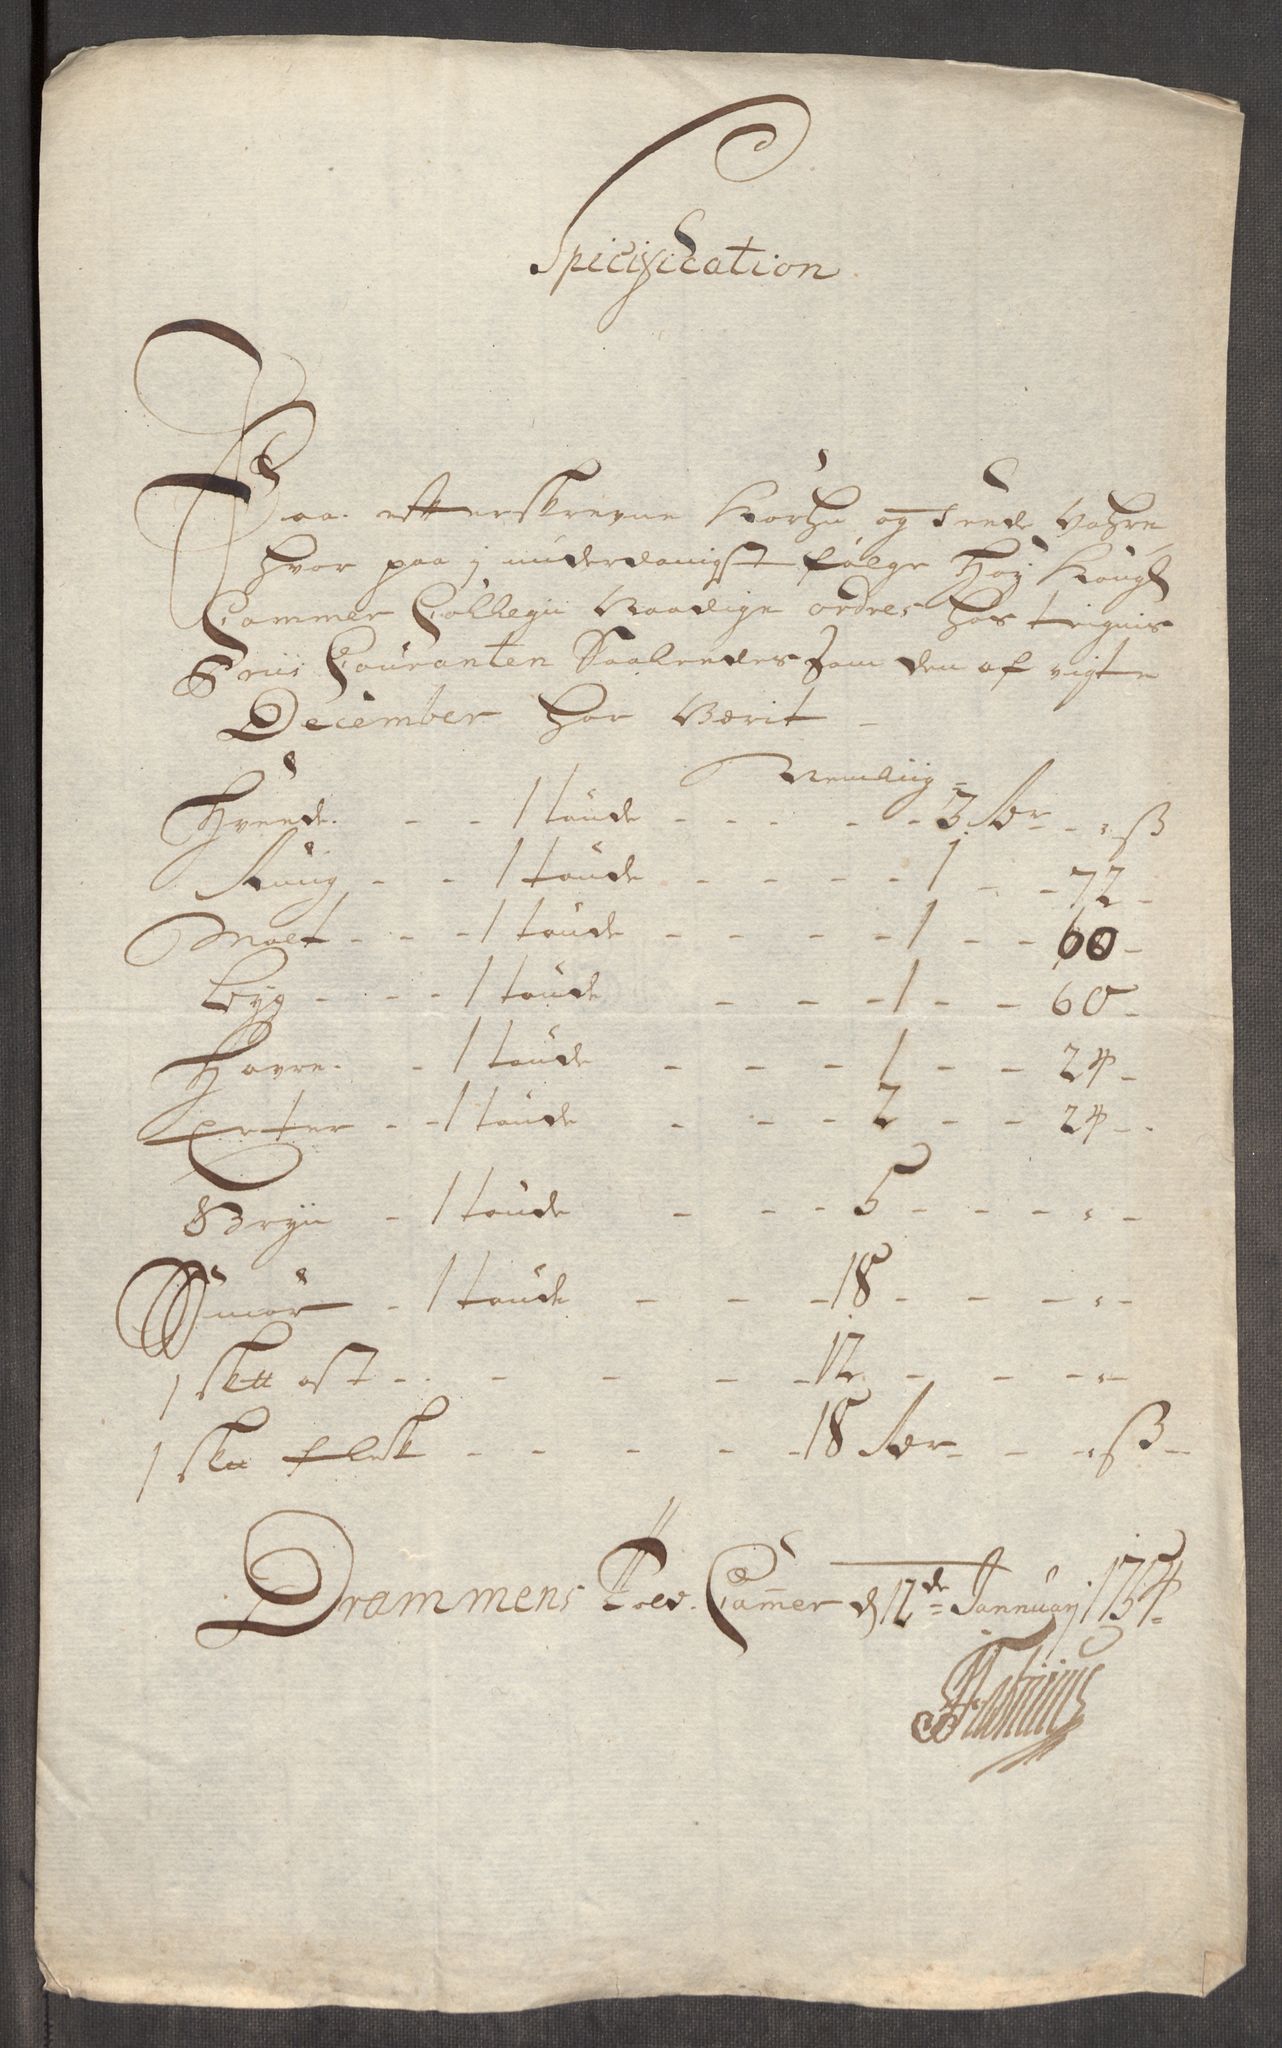 Spicification
Paa efterskrevne Korhn og Feede Vahre
hvor paa j underdanigst følge Høj Kongl
Cammer Collegii Naadige ordres hos teignis
Priis Couranten Saaledes som den af vigte
December har Værit
Nemliig
Hveede 1 tønde 3 Rdr ß
Rüug 1 tønde 1 72
Malt 1 tønde 1 60
Byg 1 tønde 1 60
Havre 1 tønde 1 24
Erter 1 tønde 2 24
Gryn 1 tønde 5
Smør 1 tønde 18
1 Sk₶ ost 12
1 Sk₶ flesk 18 Rdr ß
Drammens Told Cammer d 12de Jannuarij 1754